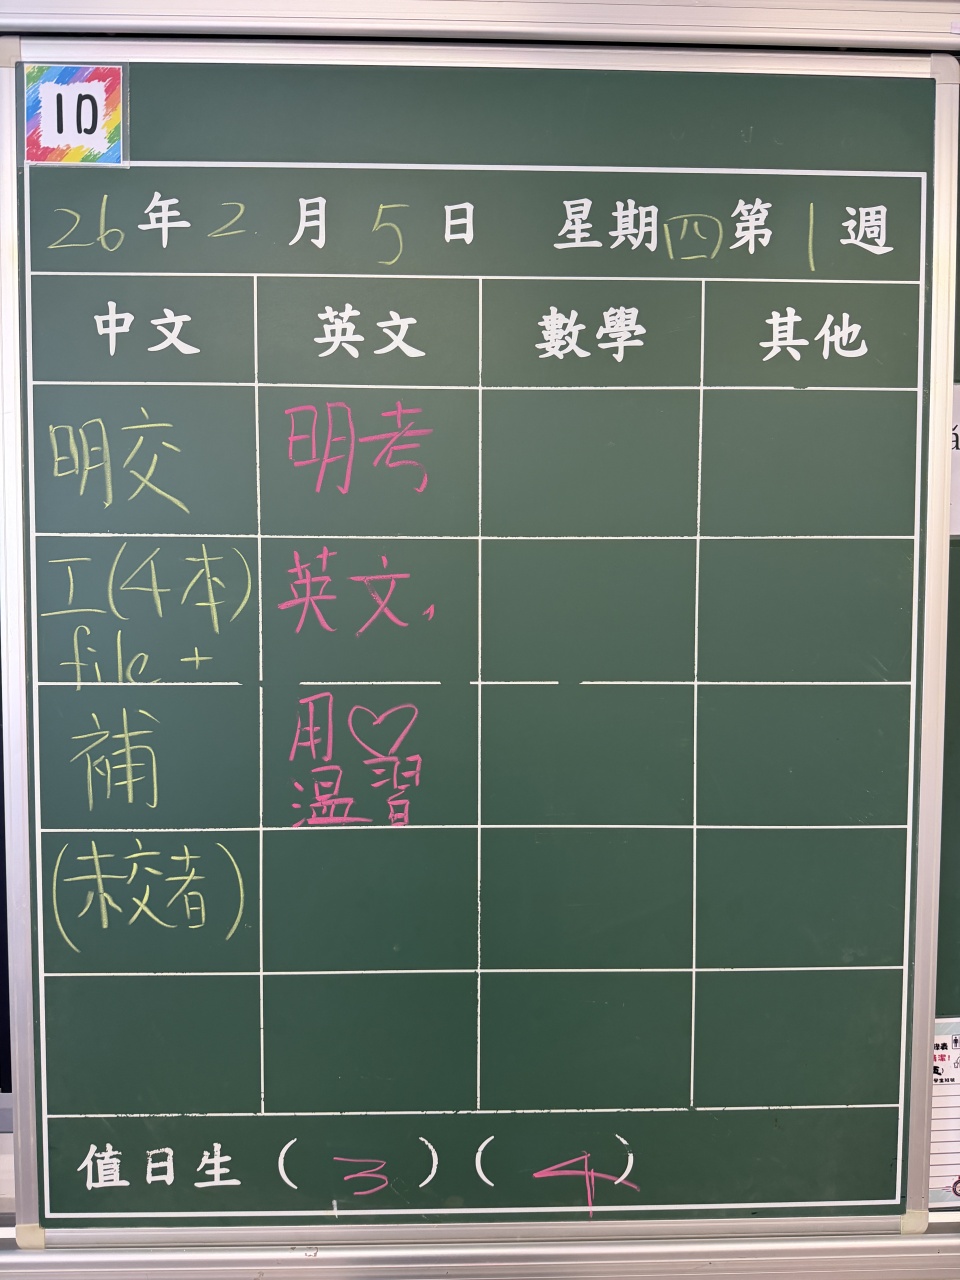 1D
26年2月5日 星期四第1週
中文 英文 數學 其他
明交 明考
工(4本) 英文,
file +
補 用♡
溫習
(未交者)
值日生(3)(4)